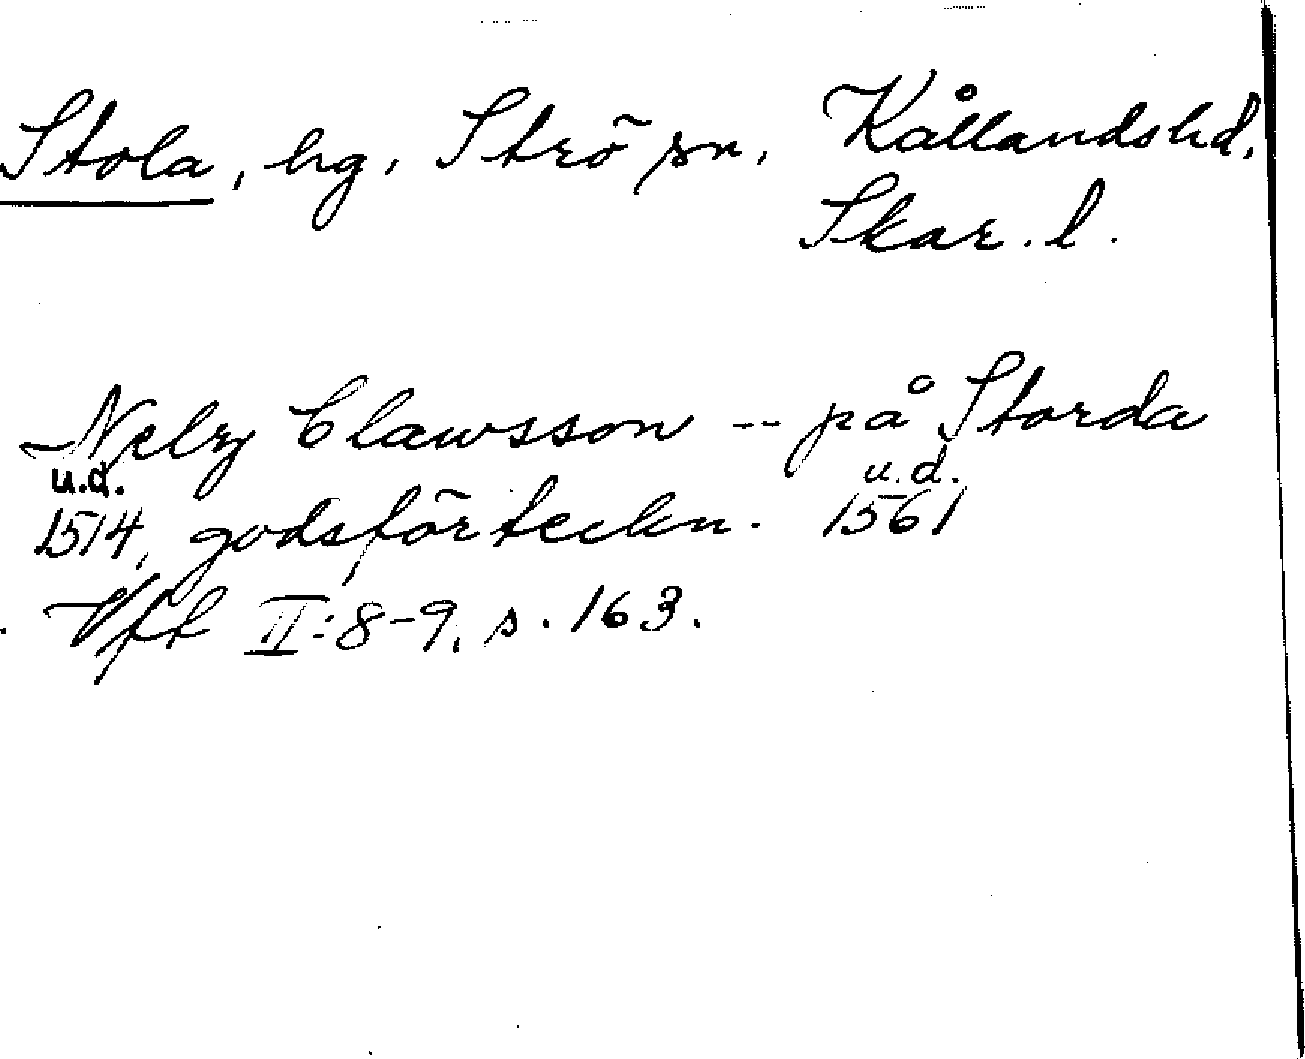 Stola, hg, Strö sn, Kållandshd,
Skar. l.
Nelz Clawsson -- på Storda
u.d. u.d.
1514, godsförteckn. 1561
Vft II:8-9, s. 163.